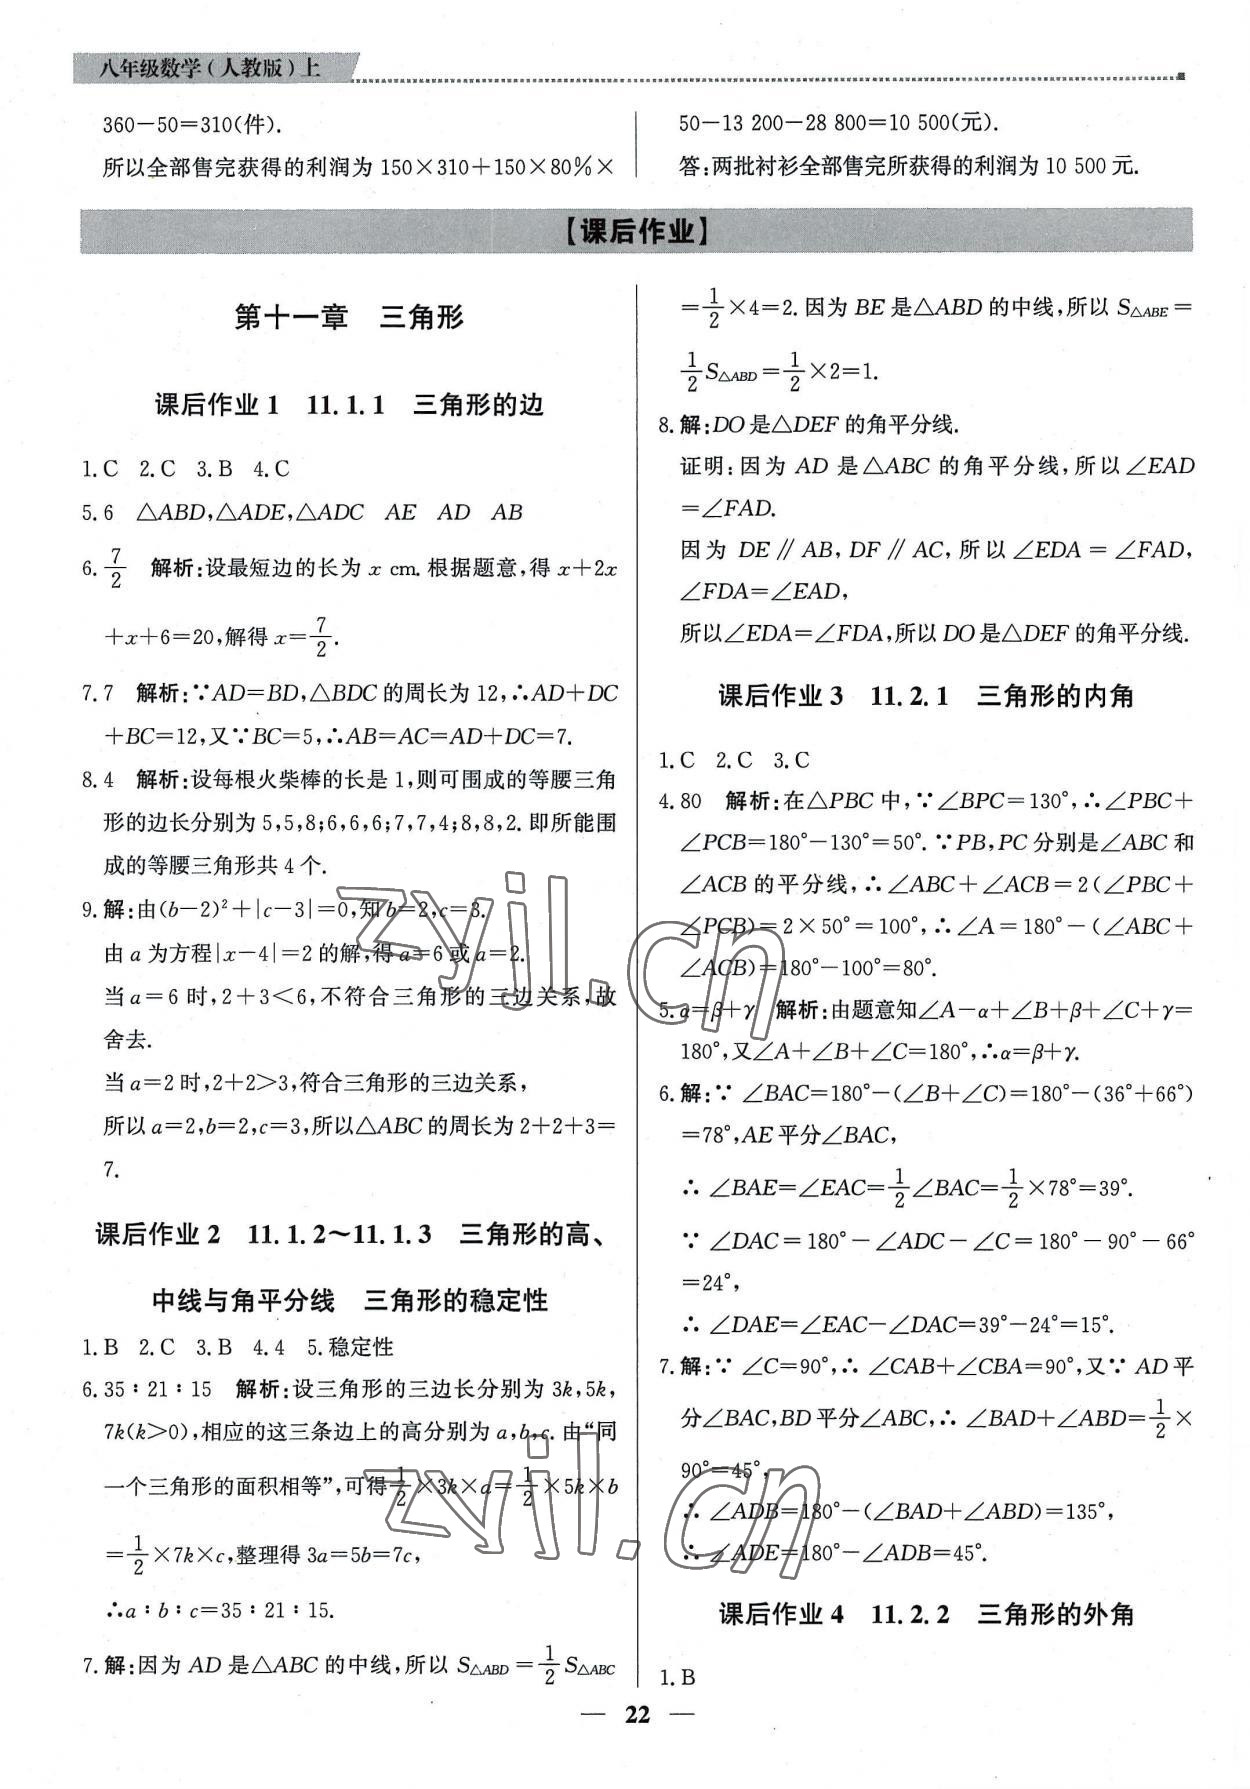 八年级数学(人教版)上
360－50＝310(件).
所以全部售完获得的利润为 150×310＋150×80%×
50－13 200－28 800＝10 500(元).
答:两批衬衫全部售完所获得的利润为 10 500 元.
【课后作业】
第十一章　三角形
课后作业 1　11.1.1　三角形的边
1.C　2.C　3.B　4.C
5.6　△ABD,△ADE,△ADC　AE　AD　AB
6.7/2　解析:设最短边的长为 x cm.根据题意,得 x＋2x
＋x＋6＝20,解得 x＝7/2.
7.7　解析:∵AD＝BD,△BDC 的周长为 12,∴AD＋DC
＋BC＝12,又∵BC＝5,∴AB＝AC＝AD＋DC＝7.
8.4　解析:设每根火柴棒的长是 1,则可围成的等腰三角
形的边长分别为 5,5,8;6,6,6;7,7,4;8,8,2.即所能围
成的等腰三角形共 4 个.
9.解:由(b－2)²＋|c－3|＝0,知 b＝2,c＝3.
由 a 为方程|x－4|＝2 的解,得 a＝6 或 a＝2.
当 a＝6 时,2＋3＜6,不符合三角形的三边关系,故
舍去.
当 a＝2 时,2＋2＞3,符合三角形的三边关系,
所以 a＝2,b＝2,c＝3,所以△ABC 的周长为 2＋2＋3＝
7.
课后作业 2　11.1.2～11.1.3　三角形的高、
中线与角平分线　三角形的稳定性
1.B　2.C　3.B　4.4　5.稳定性
6.35∶21∶15　解析:设三角形的三边长分别为 3k,5k,
7k(k＞0),相应的这三条边上的高分别为 a,b,c.由“同
一个三角形的面积相等”,可得1/2×3k×a＝1/2×5k×b
＝1/2×7k×c,整理得 3a＝5b＝7c,
∴a∶b∶c＝35∶21∶15.
7.解:因为 AD 是△ABC 的中线,所以 S△ABD＝1/2S△ABC
＝1/2×4＝2.因为 BE 是△ABD 的中线,所以 S△ABE＝
1/2S△ABD＝1/2×2＝1.
8.解:DO 是△DEF 的角平分线.
证明:因为 AD 是△ABC 的角平分线,所以∠EAD
＝∠FAD.
因为 DE∥AB,DF∥AC,所以∠EDA＝∠FAD,
∠FDA＝∠EAD,
所以∠EDA＝∠FDA,所以 DO 是△DEF 的角平分线.
课后作业 3　11.2.1　三角形的内角
1.C　2.C　3.C
4.80　解析:在△PBC 中,∵∠BPC＝130°,∴∠PBC＋
∠PCB＝180°－130°＝50°.∵PB,PC 分别是∠ABC 和
∠ACB 的平分线,∴∠ABC＋∠ACB＝2(∠PBC＋
∠PCB)＝2×50°＝100°,∴∠A＝180°－(∠ABC＋
∠ACB)＝180°－100°＝80°.
5.α＝β＋γ　解析:由题意知∠A－α＋∠B＋β＋∠C＋γ＝
180°,又∠A＋∠B＋∠C＝180°,∴α＝β＋γ.
6.解:∵∠BAC＝180°－(∠B＋∠C)＝180°－(36°＋66°)
＝78°,AE 平分∠BAC,
∴∠BAE＝∠EAC＝1/2∠BAC＝1/2×78°＝39°.
∵∠DAC＝180°－∠ADC－∠C＝180°－90°－66°
＝24°,
∴∠DAE＝∠EAC－∠DAC＝39°－24°＝15°.
7.解:∵∠C＝90°,∴∠CAB＋∠CBA＝90°,又∵AD 平
分∠BAC,BD 平分∠ABC,∴∠BAD＋∠ABD＝1/2×
90°＝45°,
∴∠ADB＝180°－(∠BAD＋∠ABD)＝135°,
∴∠ADE＝180°－∠ADB＝45°.
课后作业 4　11.2.2　三角形的外角
1.B
zyjl.cn
zyjl.cn
— 22 —